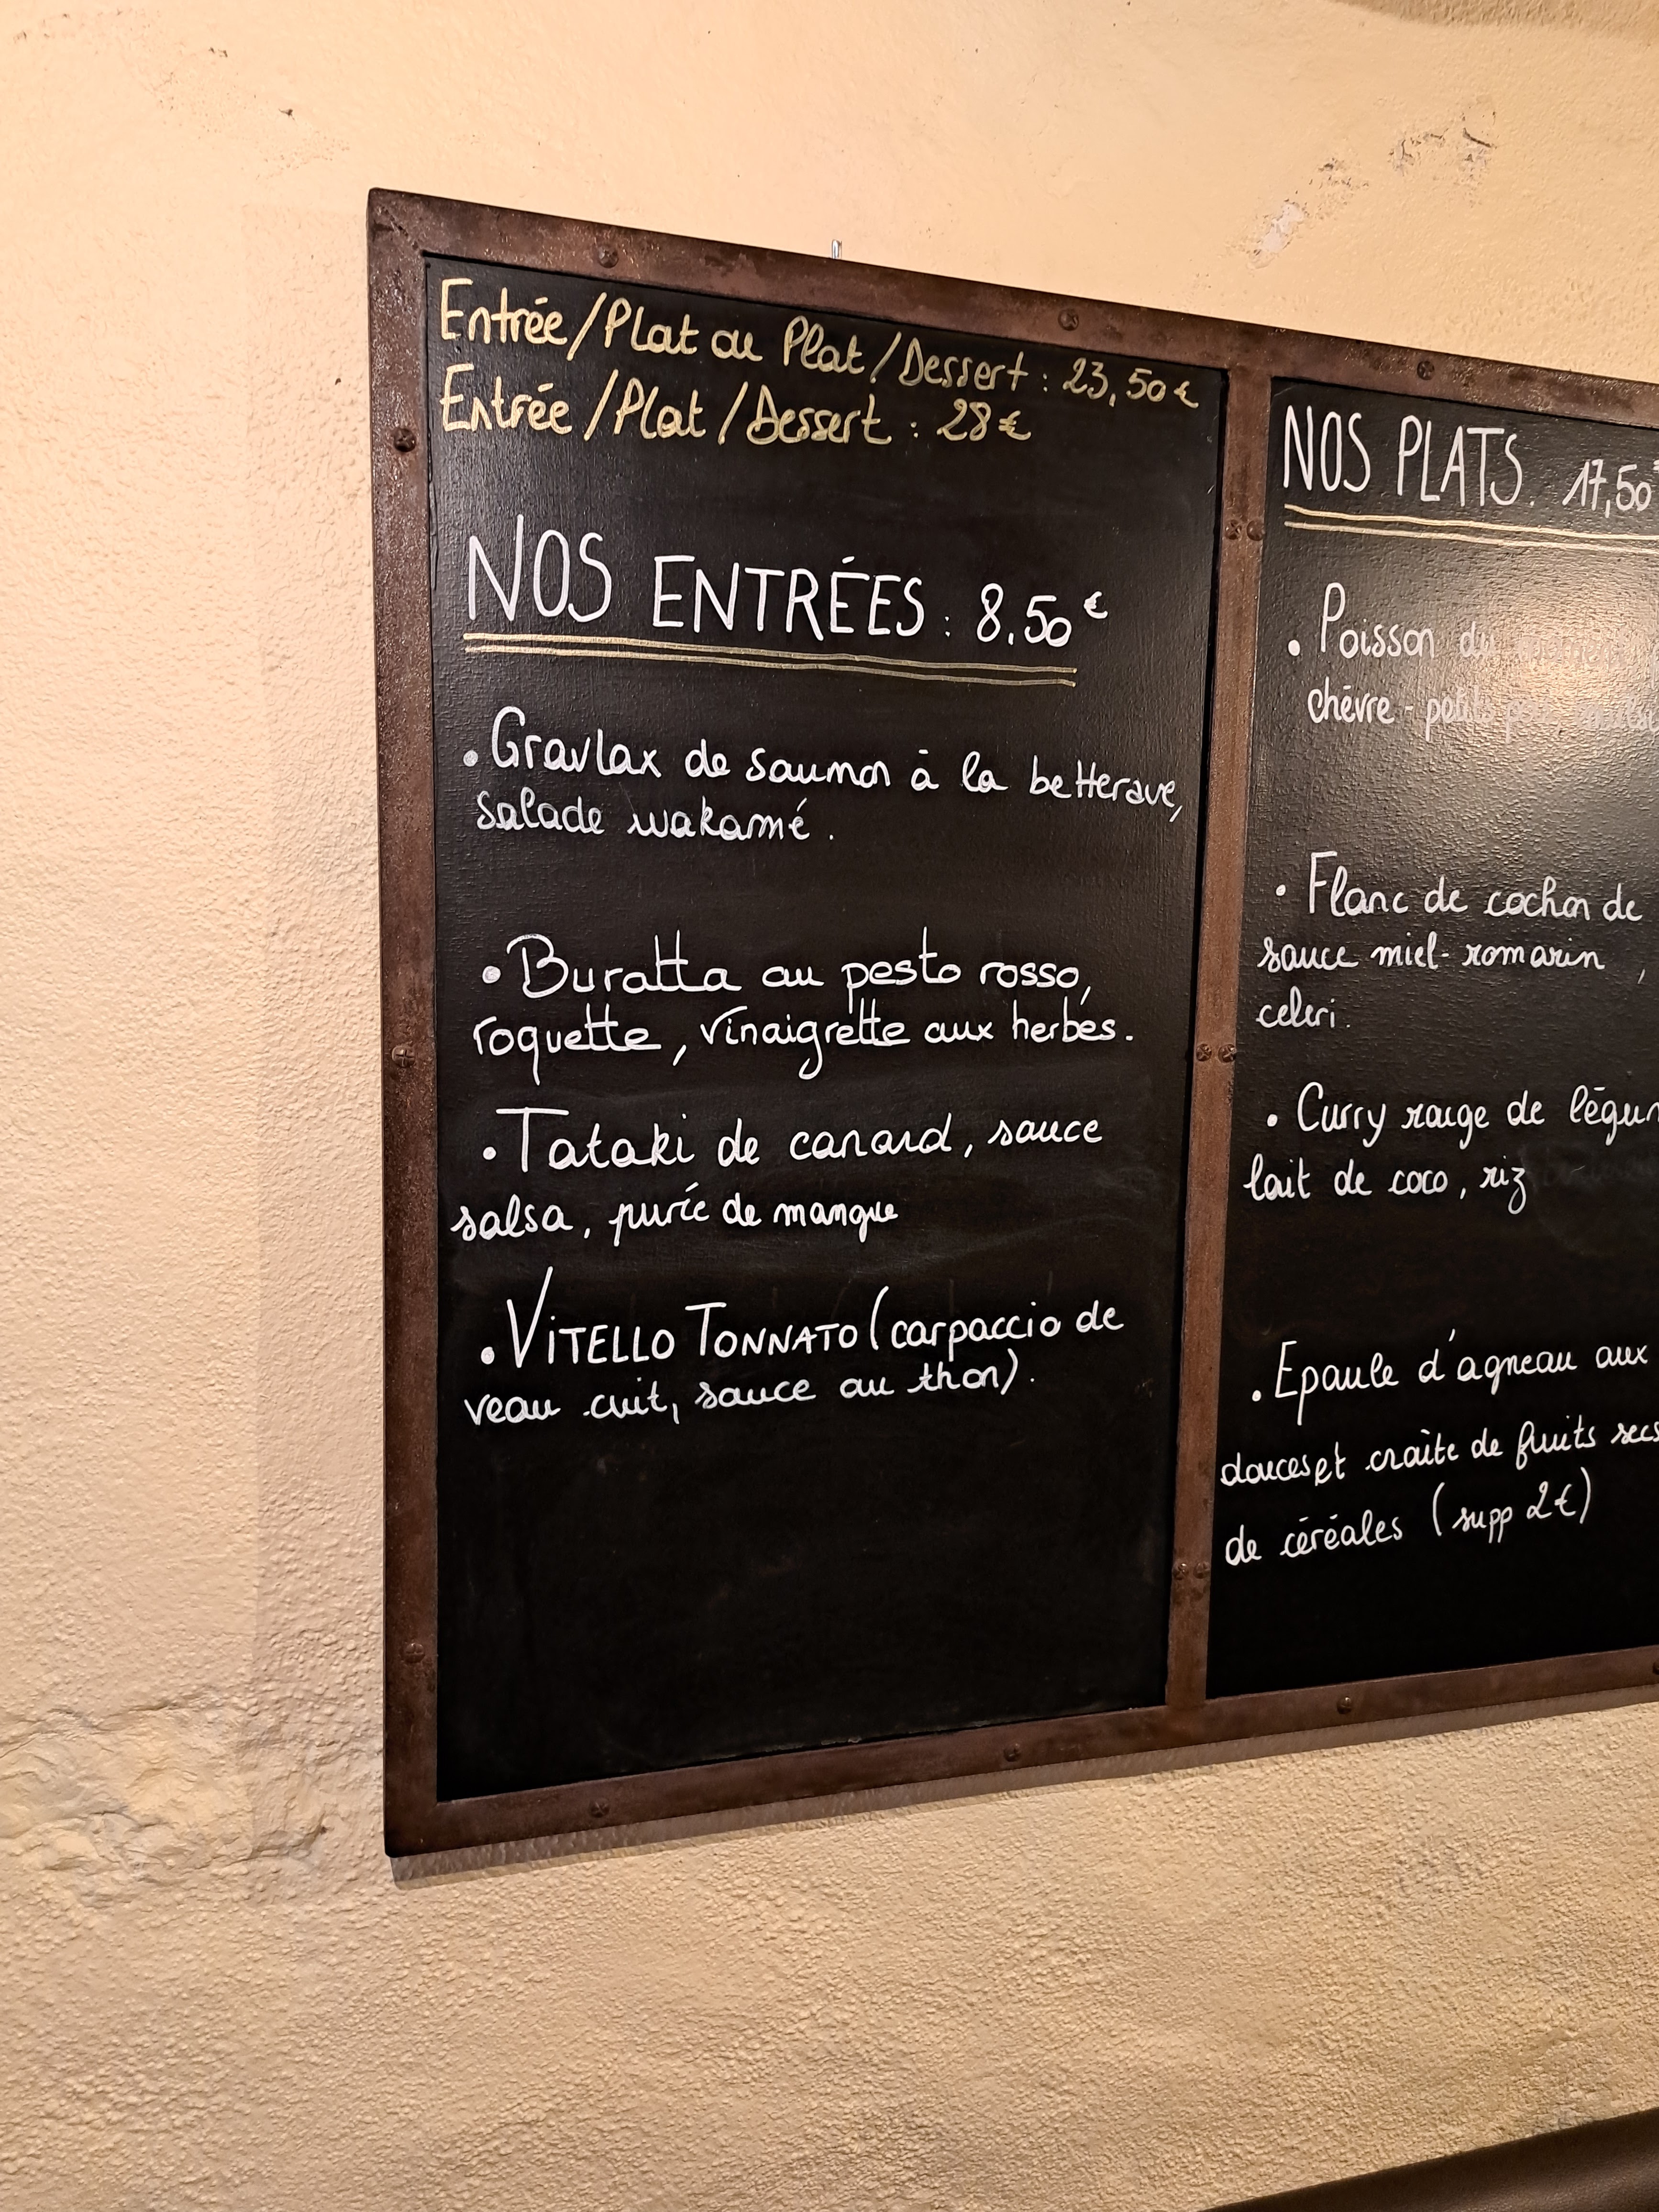 Entrée/Plat ou Plat/Dessert : 23,50€
Entrée/Plat/Dessert : 28€
NOS ENTRÉES : 8.50€
• Gravlax de saumon à la betterave,
salade wakamé.
• Buratta au pesto rosso,
roquette, vinaigrette aux herbes.
• Tataki de canard, sauce
salsa, purée de mangue
• VITELLO TONNATO (carpaccio de
veau cuit, sauce au thon).
NOS PLATS. 17,50
• Poisson du
chèvre - petits
• Flanc de cochon de
sauce miel-romarin,
celeri.
• Curry rouge de
lait de coco, riz
• Epaule d'agneau aux
douces et croûte de fruits secs
de céréales (supp 2€)